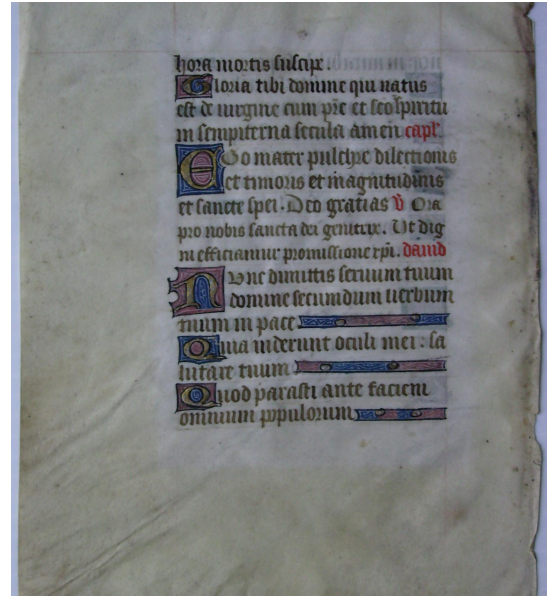 hora mortis suscipe.
Gloria tibi domine qui natus
est de uirgine cum pre et sco spiritu
in sempiterna secula amen capl'.
Ego mater pulchre dilectionis
et timoris et magnitudinis
et sancte spei. Deo gratias V Ora
pro nobis sancta dei genitrix. Ut dig
ni efficiamur promissione xpi. dauid
Nunc dimittis seruum tuum
domine secundum uerbum
tuum in pace
Quia uiderunt oculi mei: sa
lutare tuum
Quod parasti ante faciem
omnium populorum